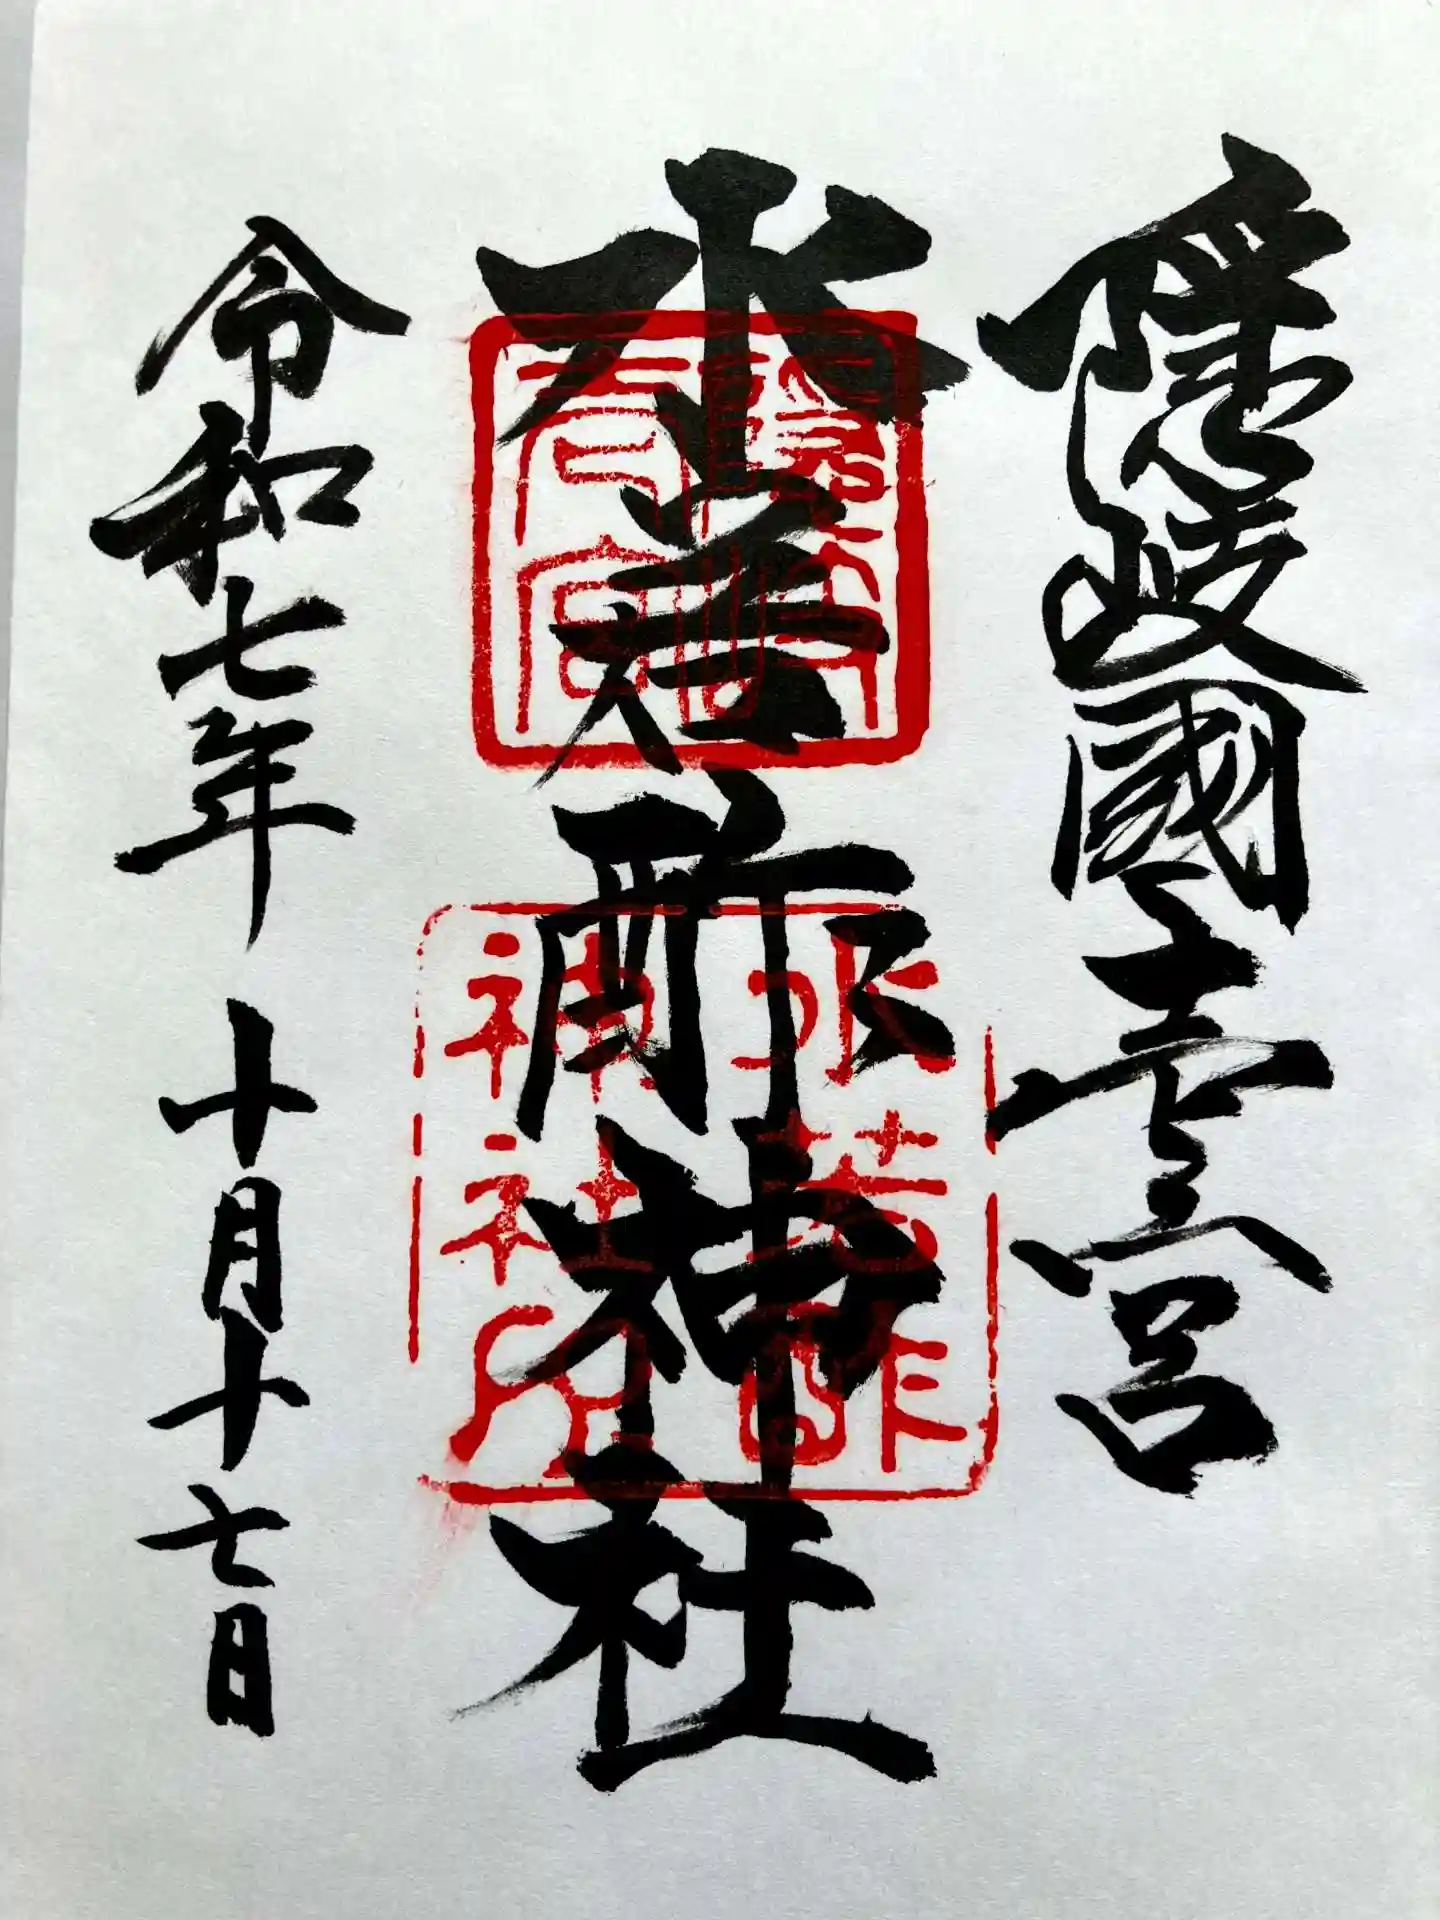 隠岐國壹宮
水若酢神社
令和七年 十月十七日
水若酢
神社印